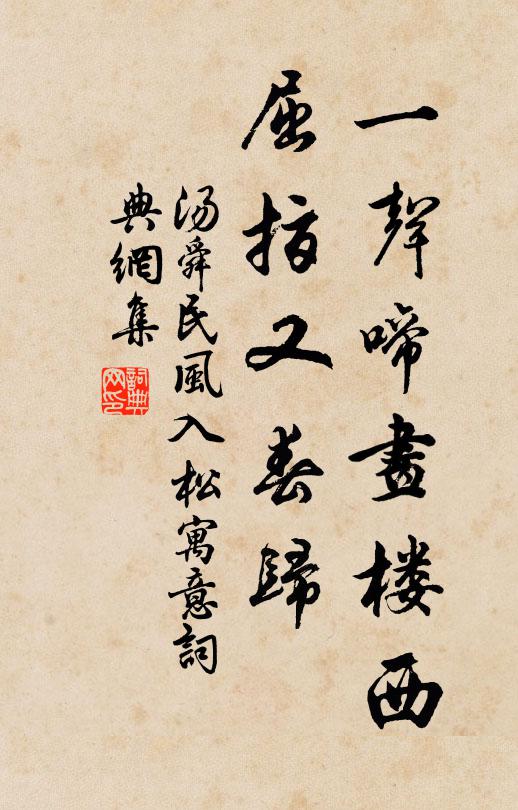 一聲啼畫楼西
屈指又春歸
汤舜民風入松寓意詞
典網集
詞典网印